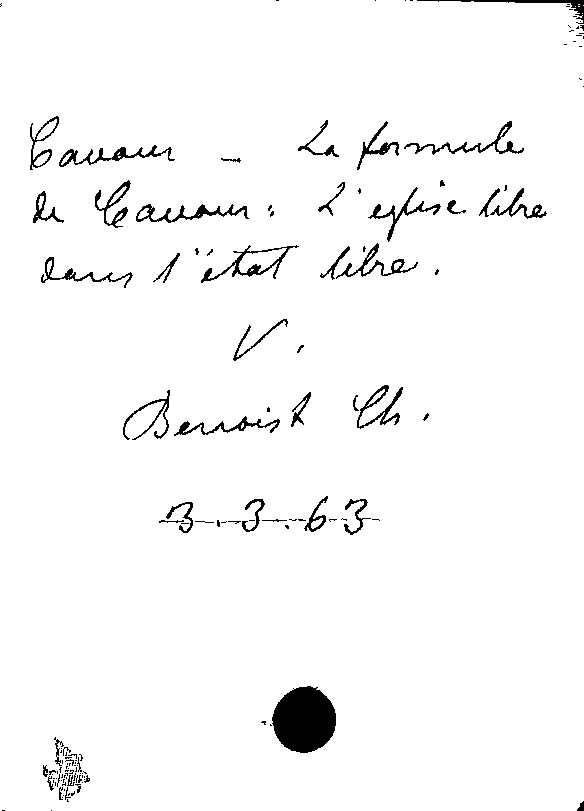 Cavour - La formule
de Cavour: L'eglise libre
dans l'état libre.
V.
Benoist Ch.
3.3.63